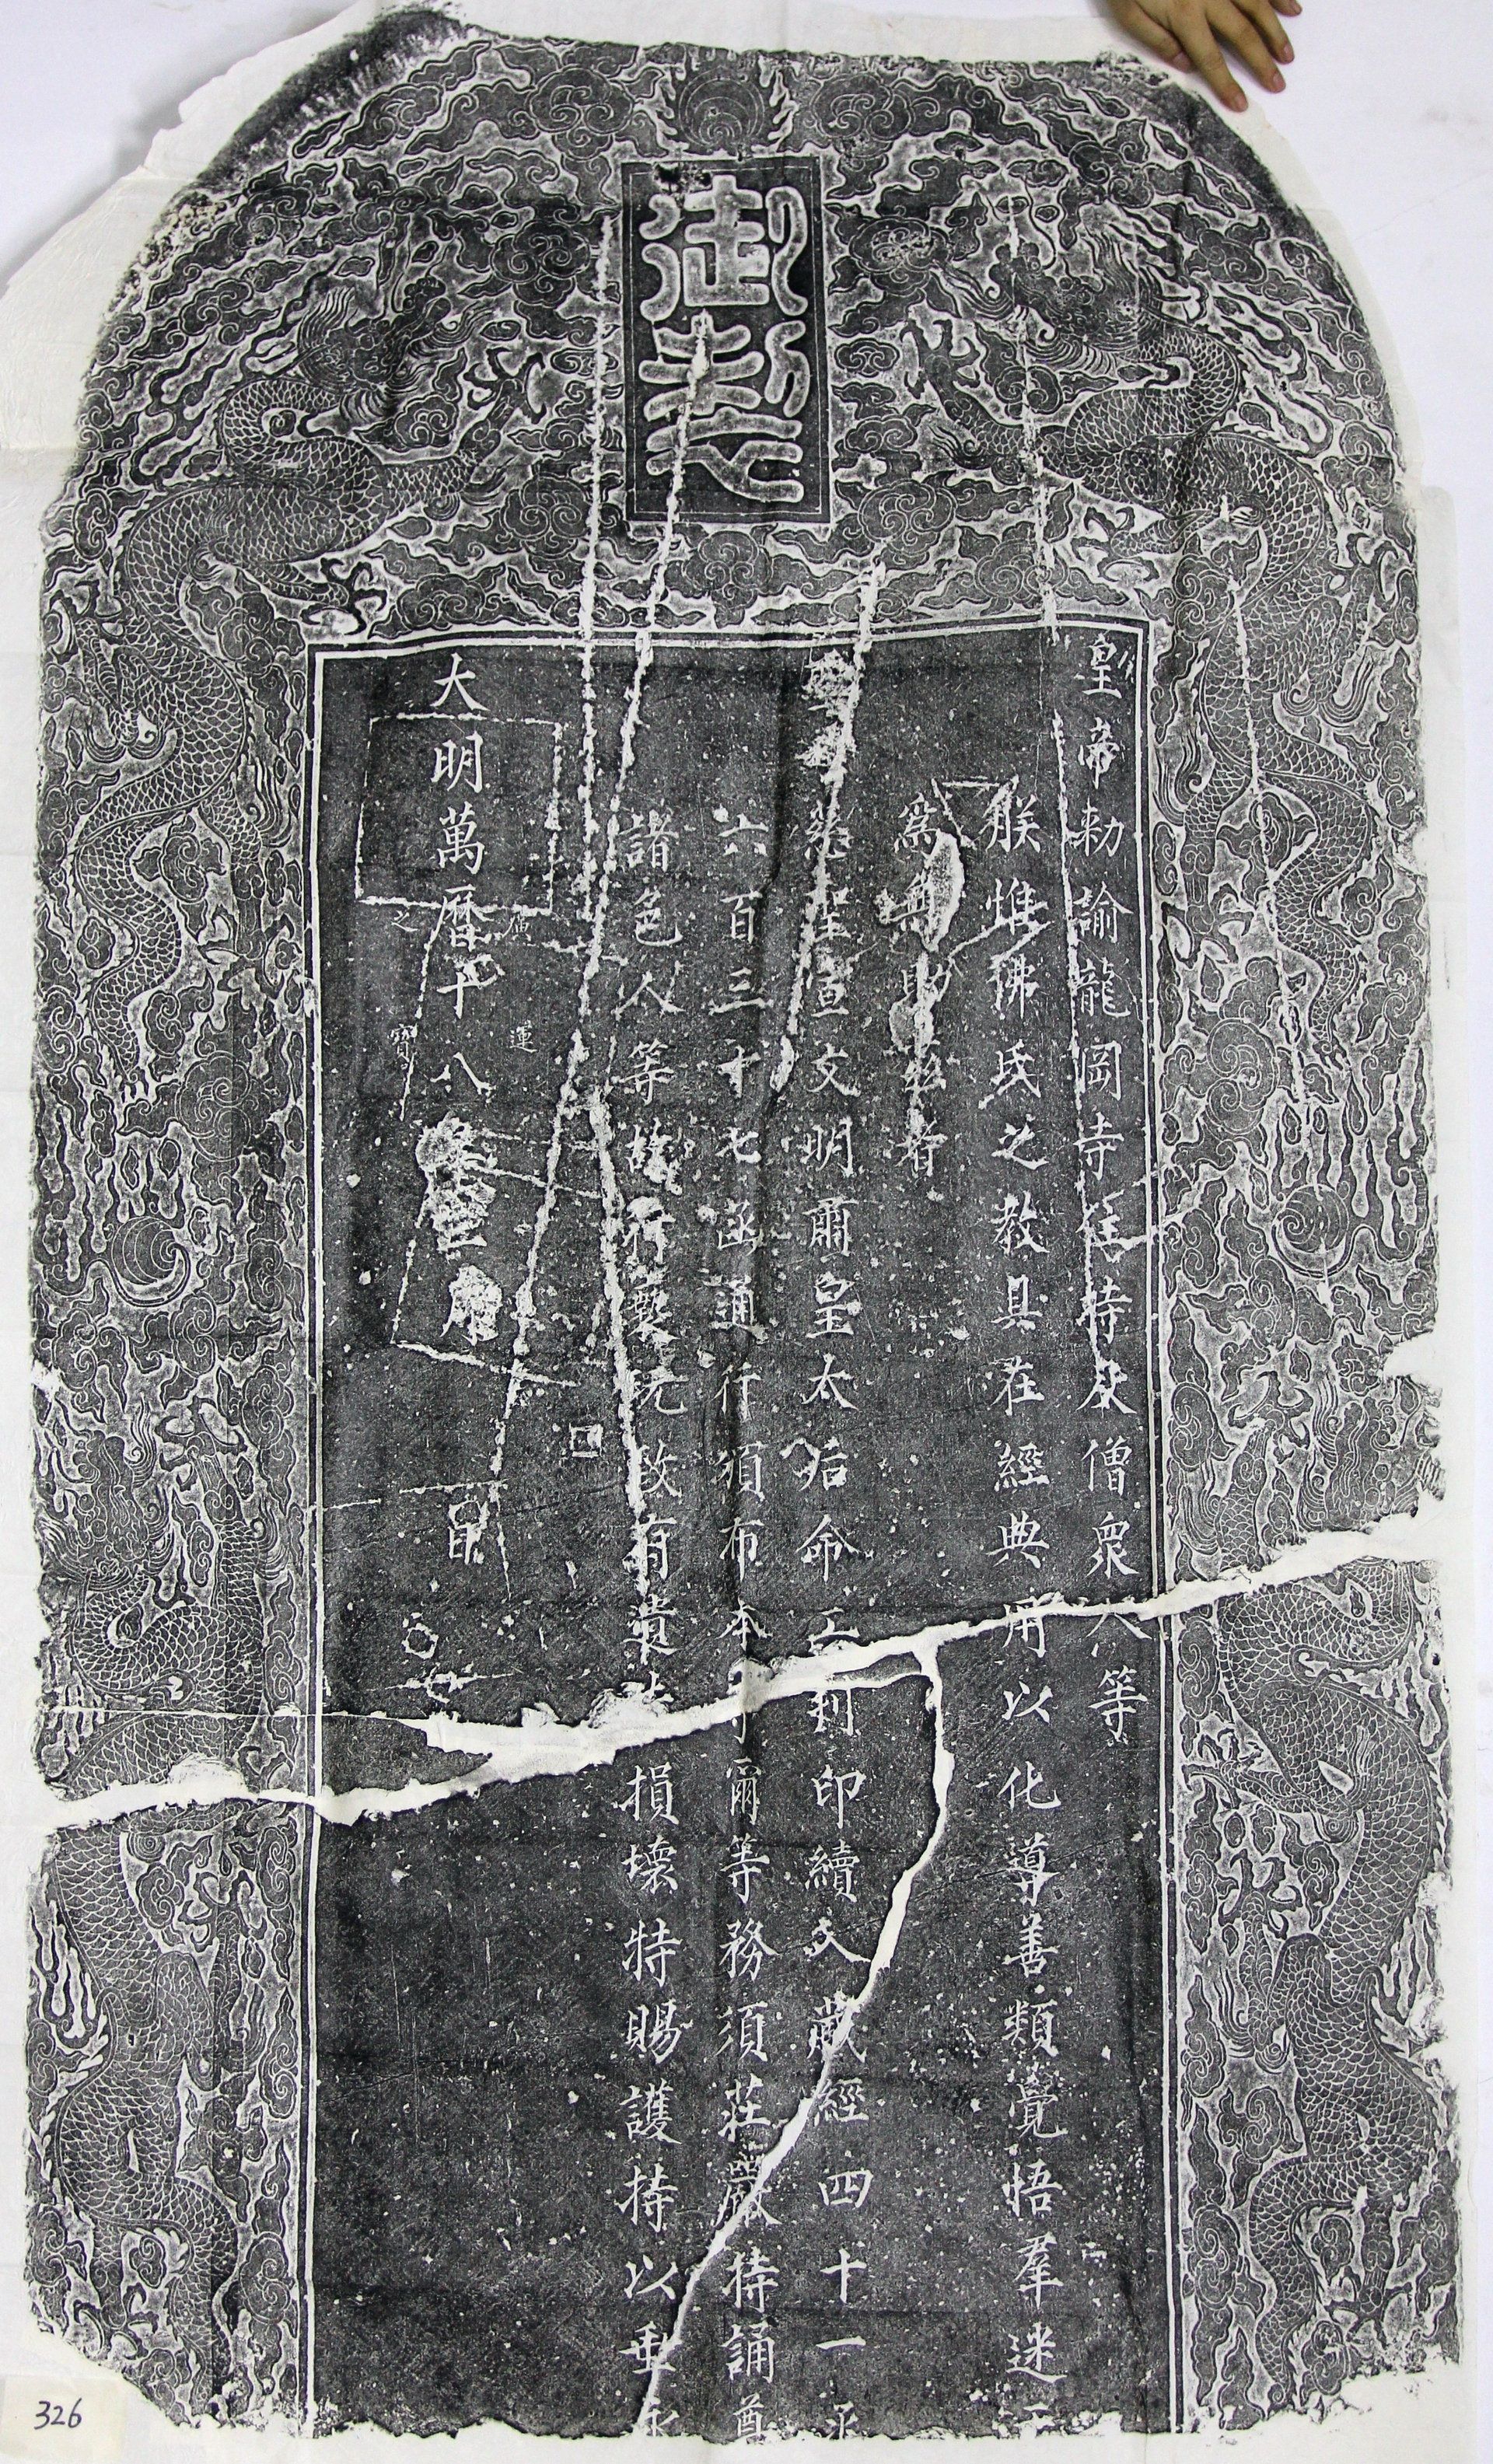 御製
皇帝勅諭龍岡寺住持及僧眾人等
朕惟佛氏之教具在經典用以化導善類覺悟羣迷
為
慈聖宣文明肅皇太后命工刊印續入藏經四十一
六百三十七函通行頒布本寺爾等務須莊嚴持誦尊
諸色人等故行褻玩致有遺失損壞特賜護持以垂永
大明萬曆十八年 月 日
廣運之寶
326